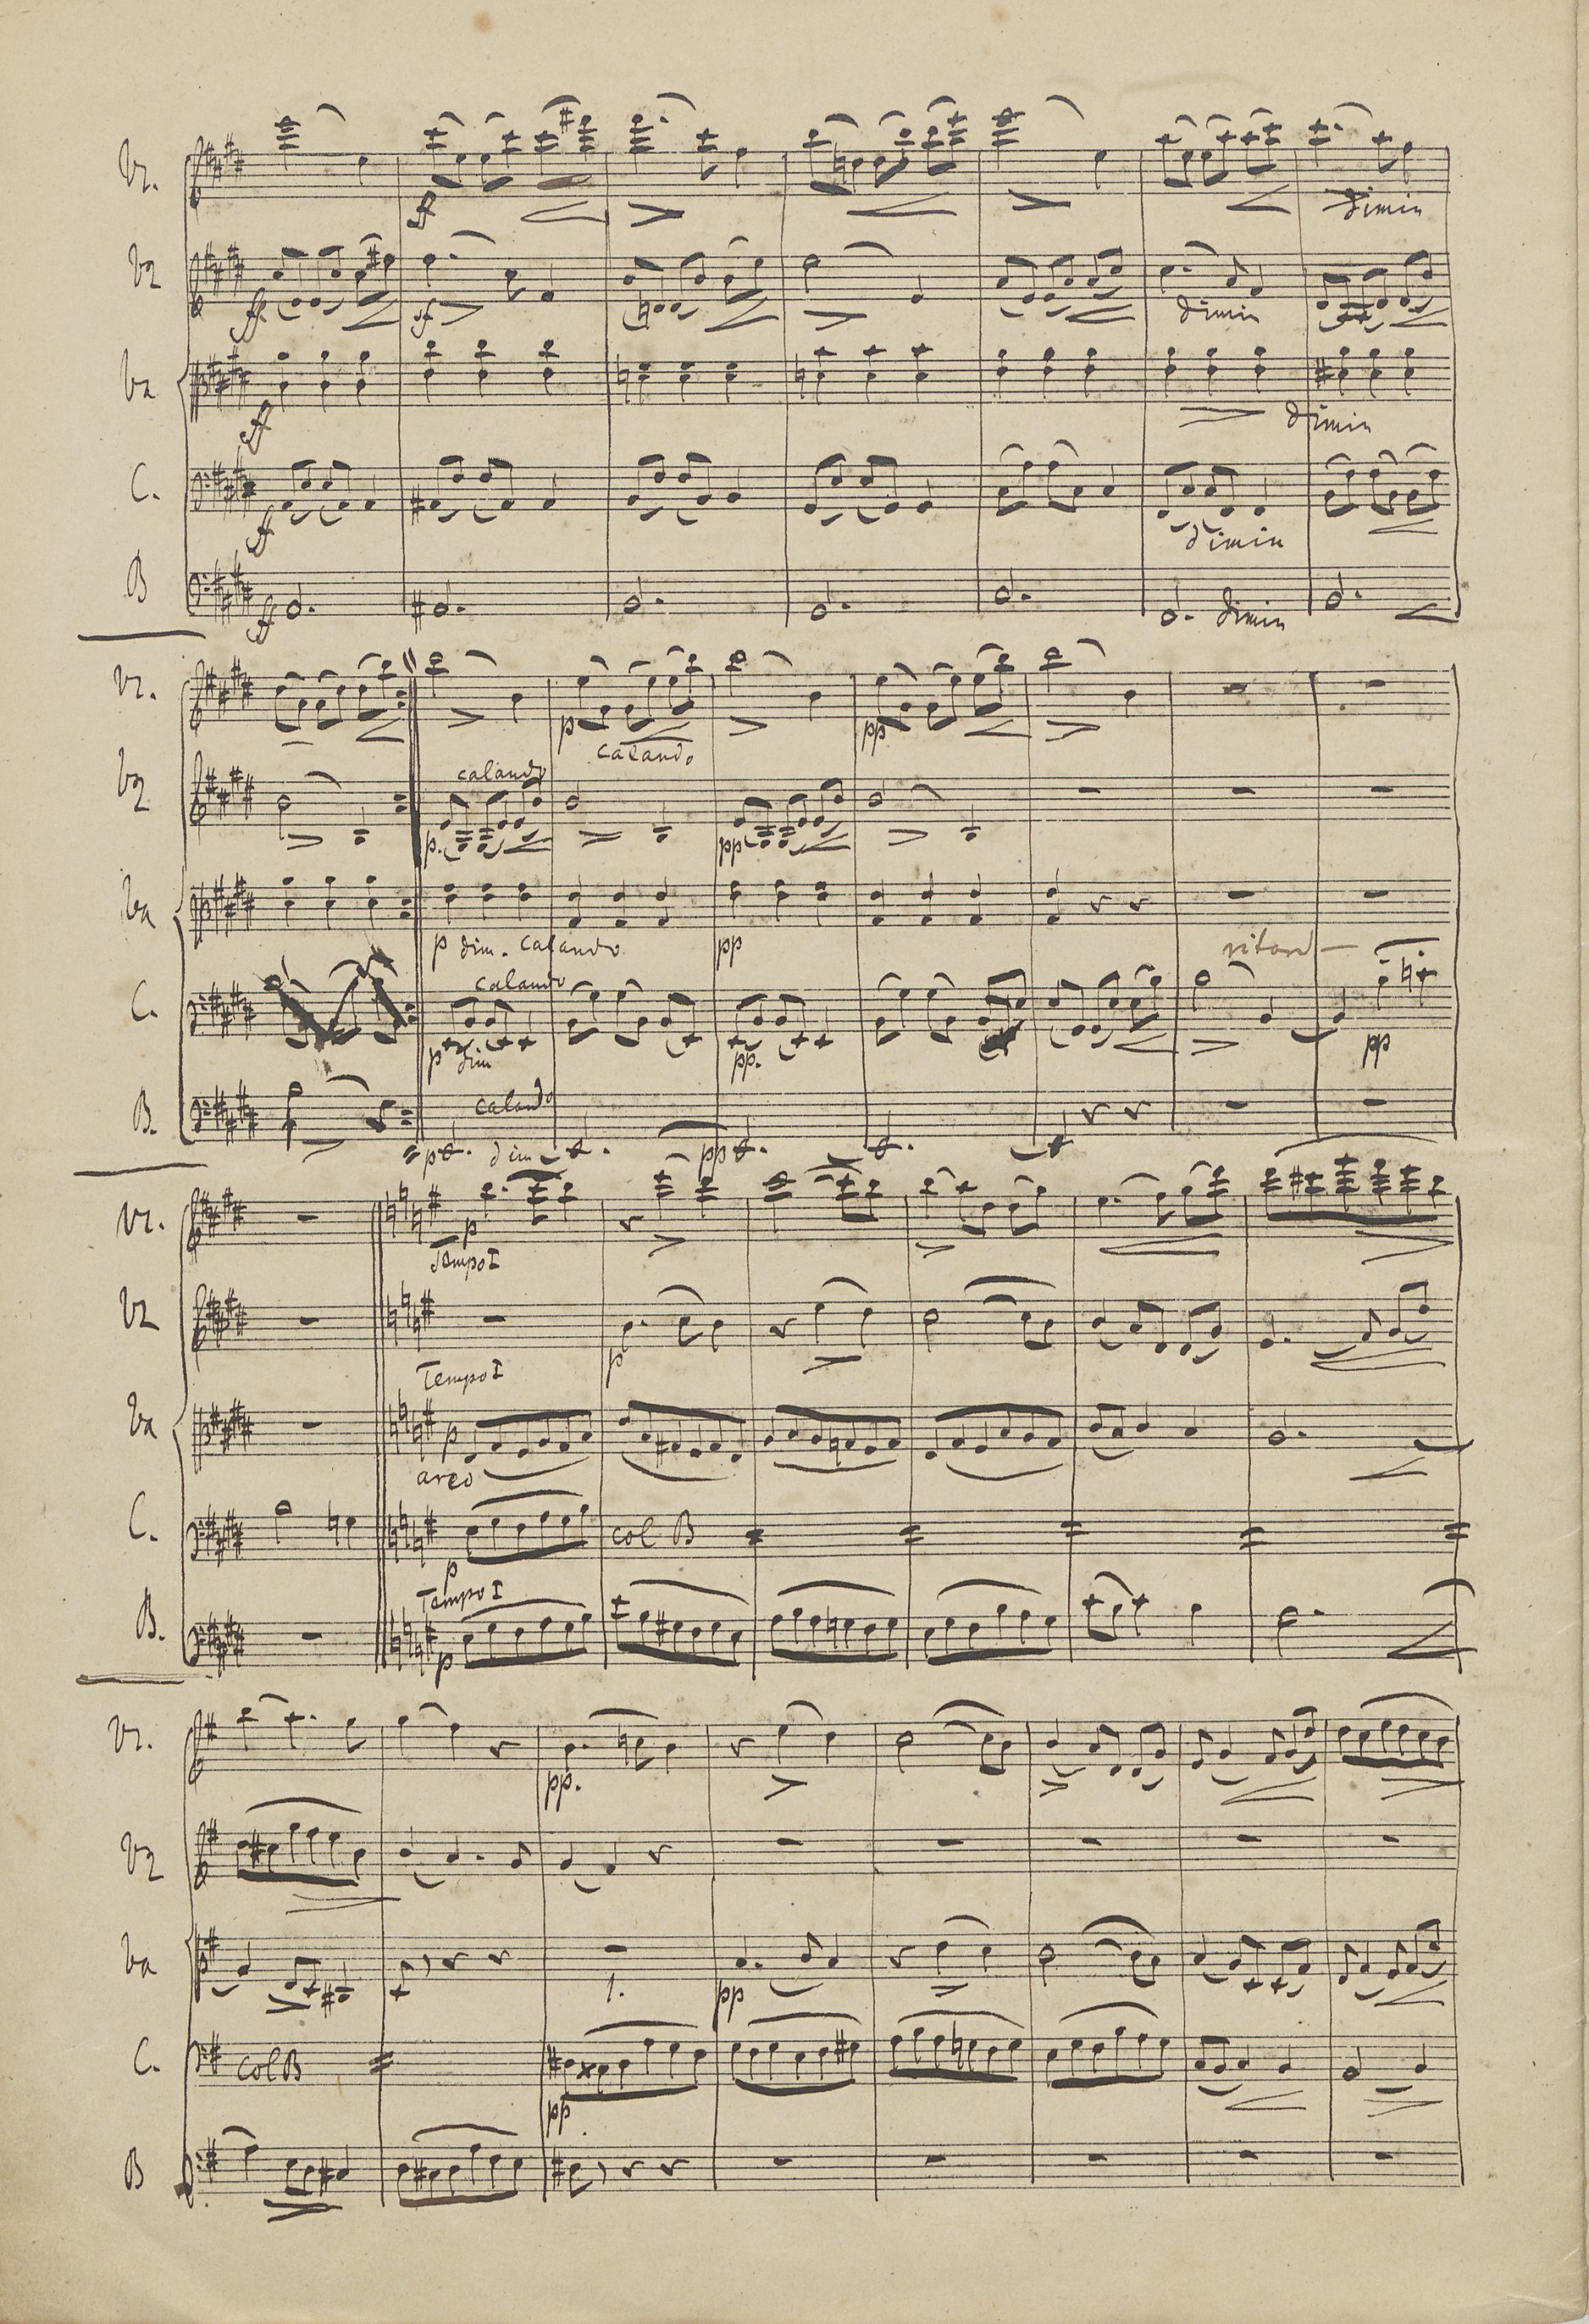 V1.
ff
dimin
V2
ff.
sf
dimin
Va
ff
dimin
C.
ff
dimin
B
ff
dimin
V1.
p
pp
calando
V2
calando
p.
pp
Va
p dim. calando
pp
ritard
C.
calando
p dim
pp.
pp
B.
calando
p
dim
pp
V1.
p
Tempo I
V2
p
Tempo I
Va
p
arco
C.
col B
p
Tempo I
B.
p
V1.
pp.
V2
Va
1.
pp
C.
col B
pp.
B